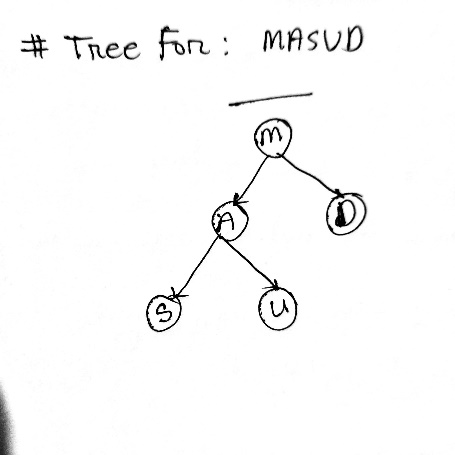 # Tree for: MASUD
M
A D
S U